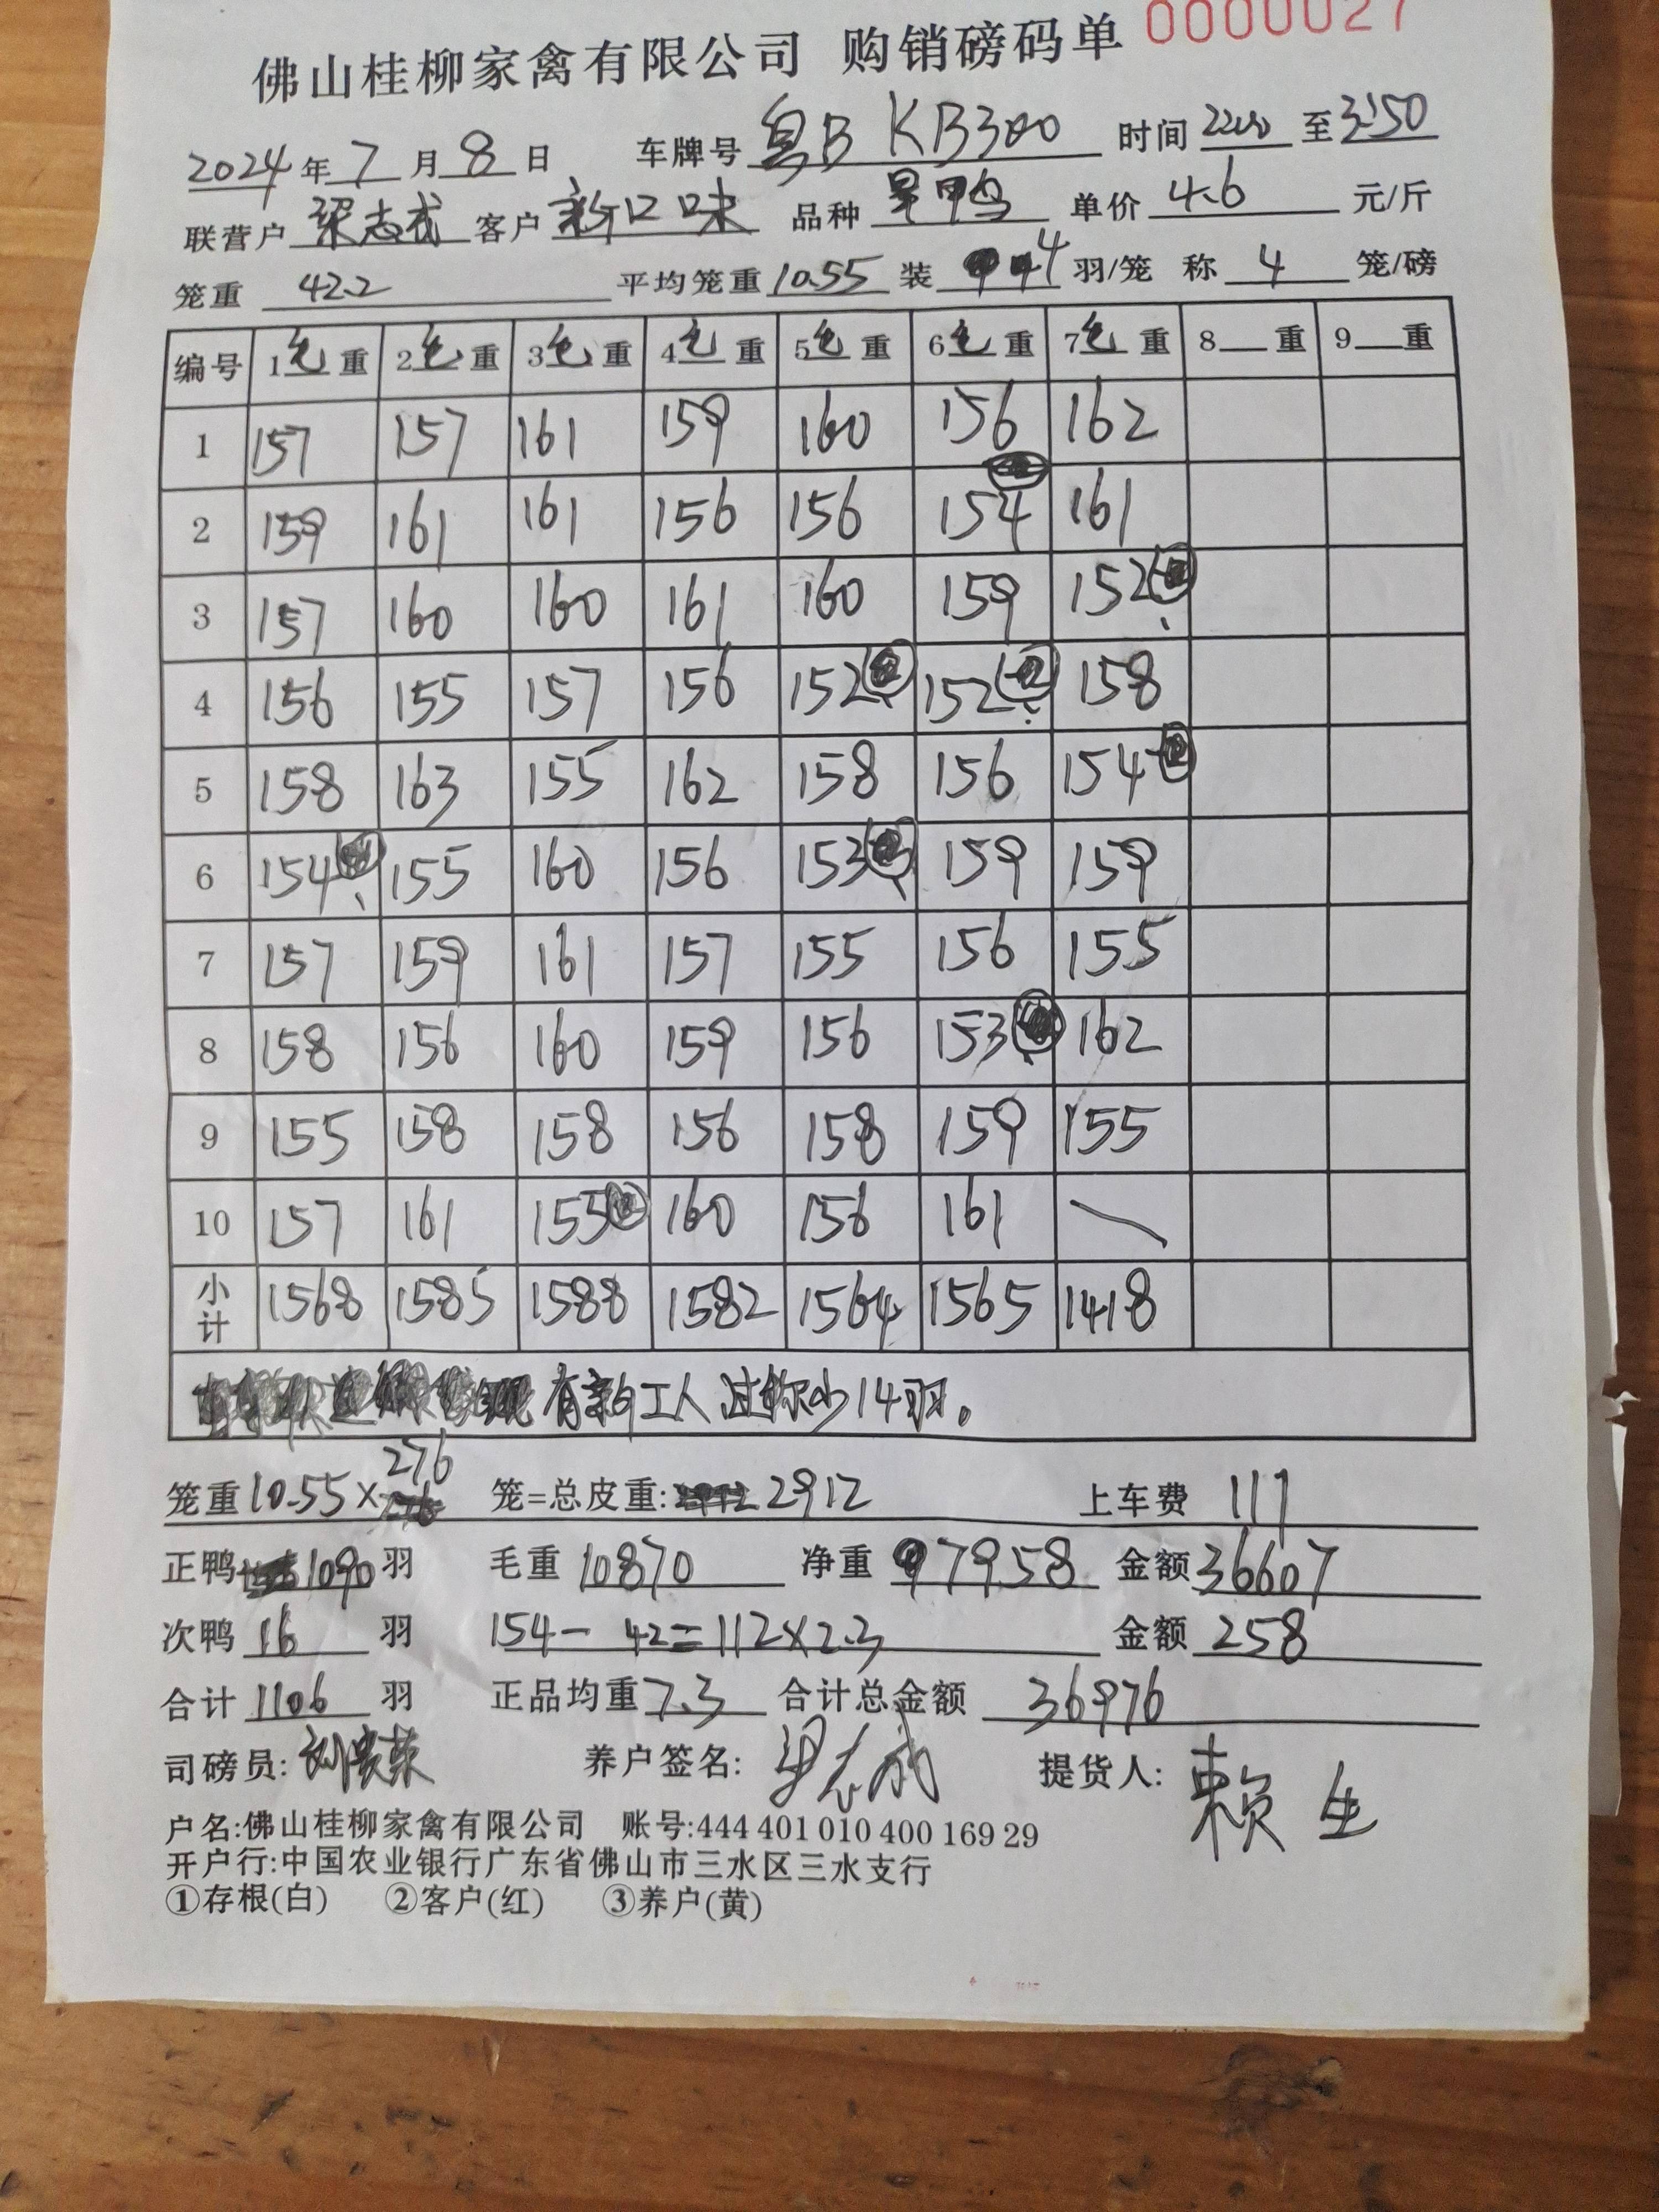 0000027
佛山桂柳家禽有限公司 购销磅码单
2024年7月8日 车牌号 粤B KB300 时间 2200 至 3:50
联营户 梁志成 客户 新口味 品种 旱鸭 单价 4.6 元/斤
笼重 42.2 平均笼重 10.55 装 4 羽/笼 称 4 笼/磅
编号 1毛重 2毛重 3毛重 4毛重 5毛重 6毛重 7毛重 8重 9重
1 157 157 161 159 160 156 162
2 159 161 161 156 156 154 161
3 157 160 160 161 160 159 152
4 156 155 157 156 152 152 158
5 158 163 155 162 158 156 154
6 154 155 160 156 153 159 159
7 157 159 161 157 155 156 155
8 158 156 160 159 156 153 162
9 155 158 158 156 158 159 155
10 157 161 155 160 156 161
小计 1568 1585 1588 1582 1564 1565 1418
有新工人过称少14羽。
笼重 10.55×276 笼=总皮重: 2912 上车费 111
正鸭 1090 羽 毛重 10870 净重 7958 金额 36607
次鸭 16 羽 154-42=112×2.3 金额 258
合计 1106 羽 正品均重 7.3 合计总金额 36976
司磅员: 刘荣 养户签名: 梁志成 提货人: 赖生
户名:佛山桂柳家禽有限公司 账号:444 401 010 400 169 29
开户行:中国农业银行广东省佛山市三水区三水支行
①存根(白) ②客户(红) ③养户(黄)